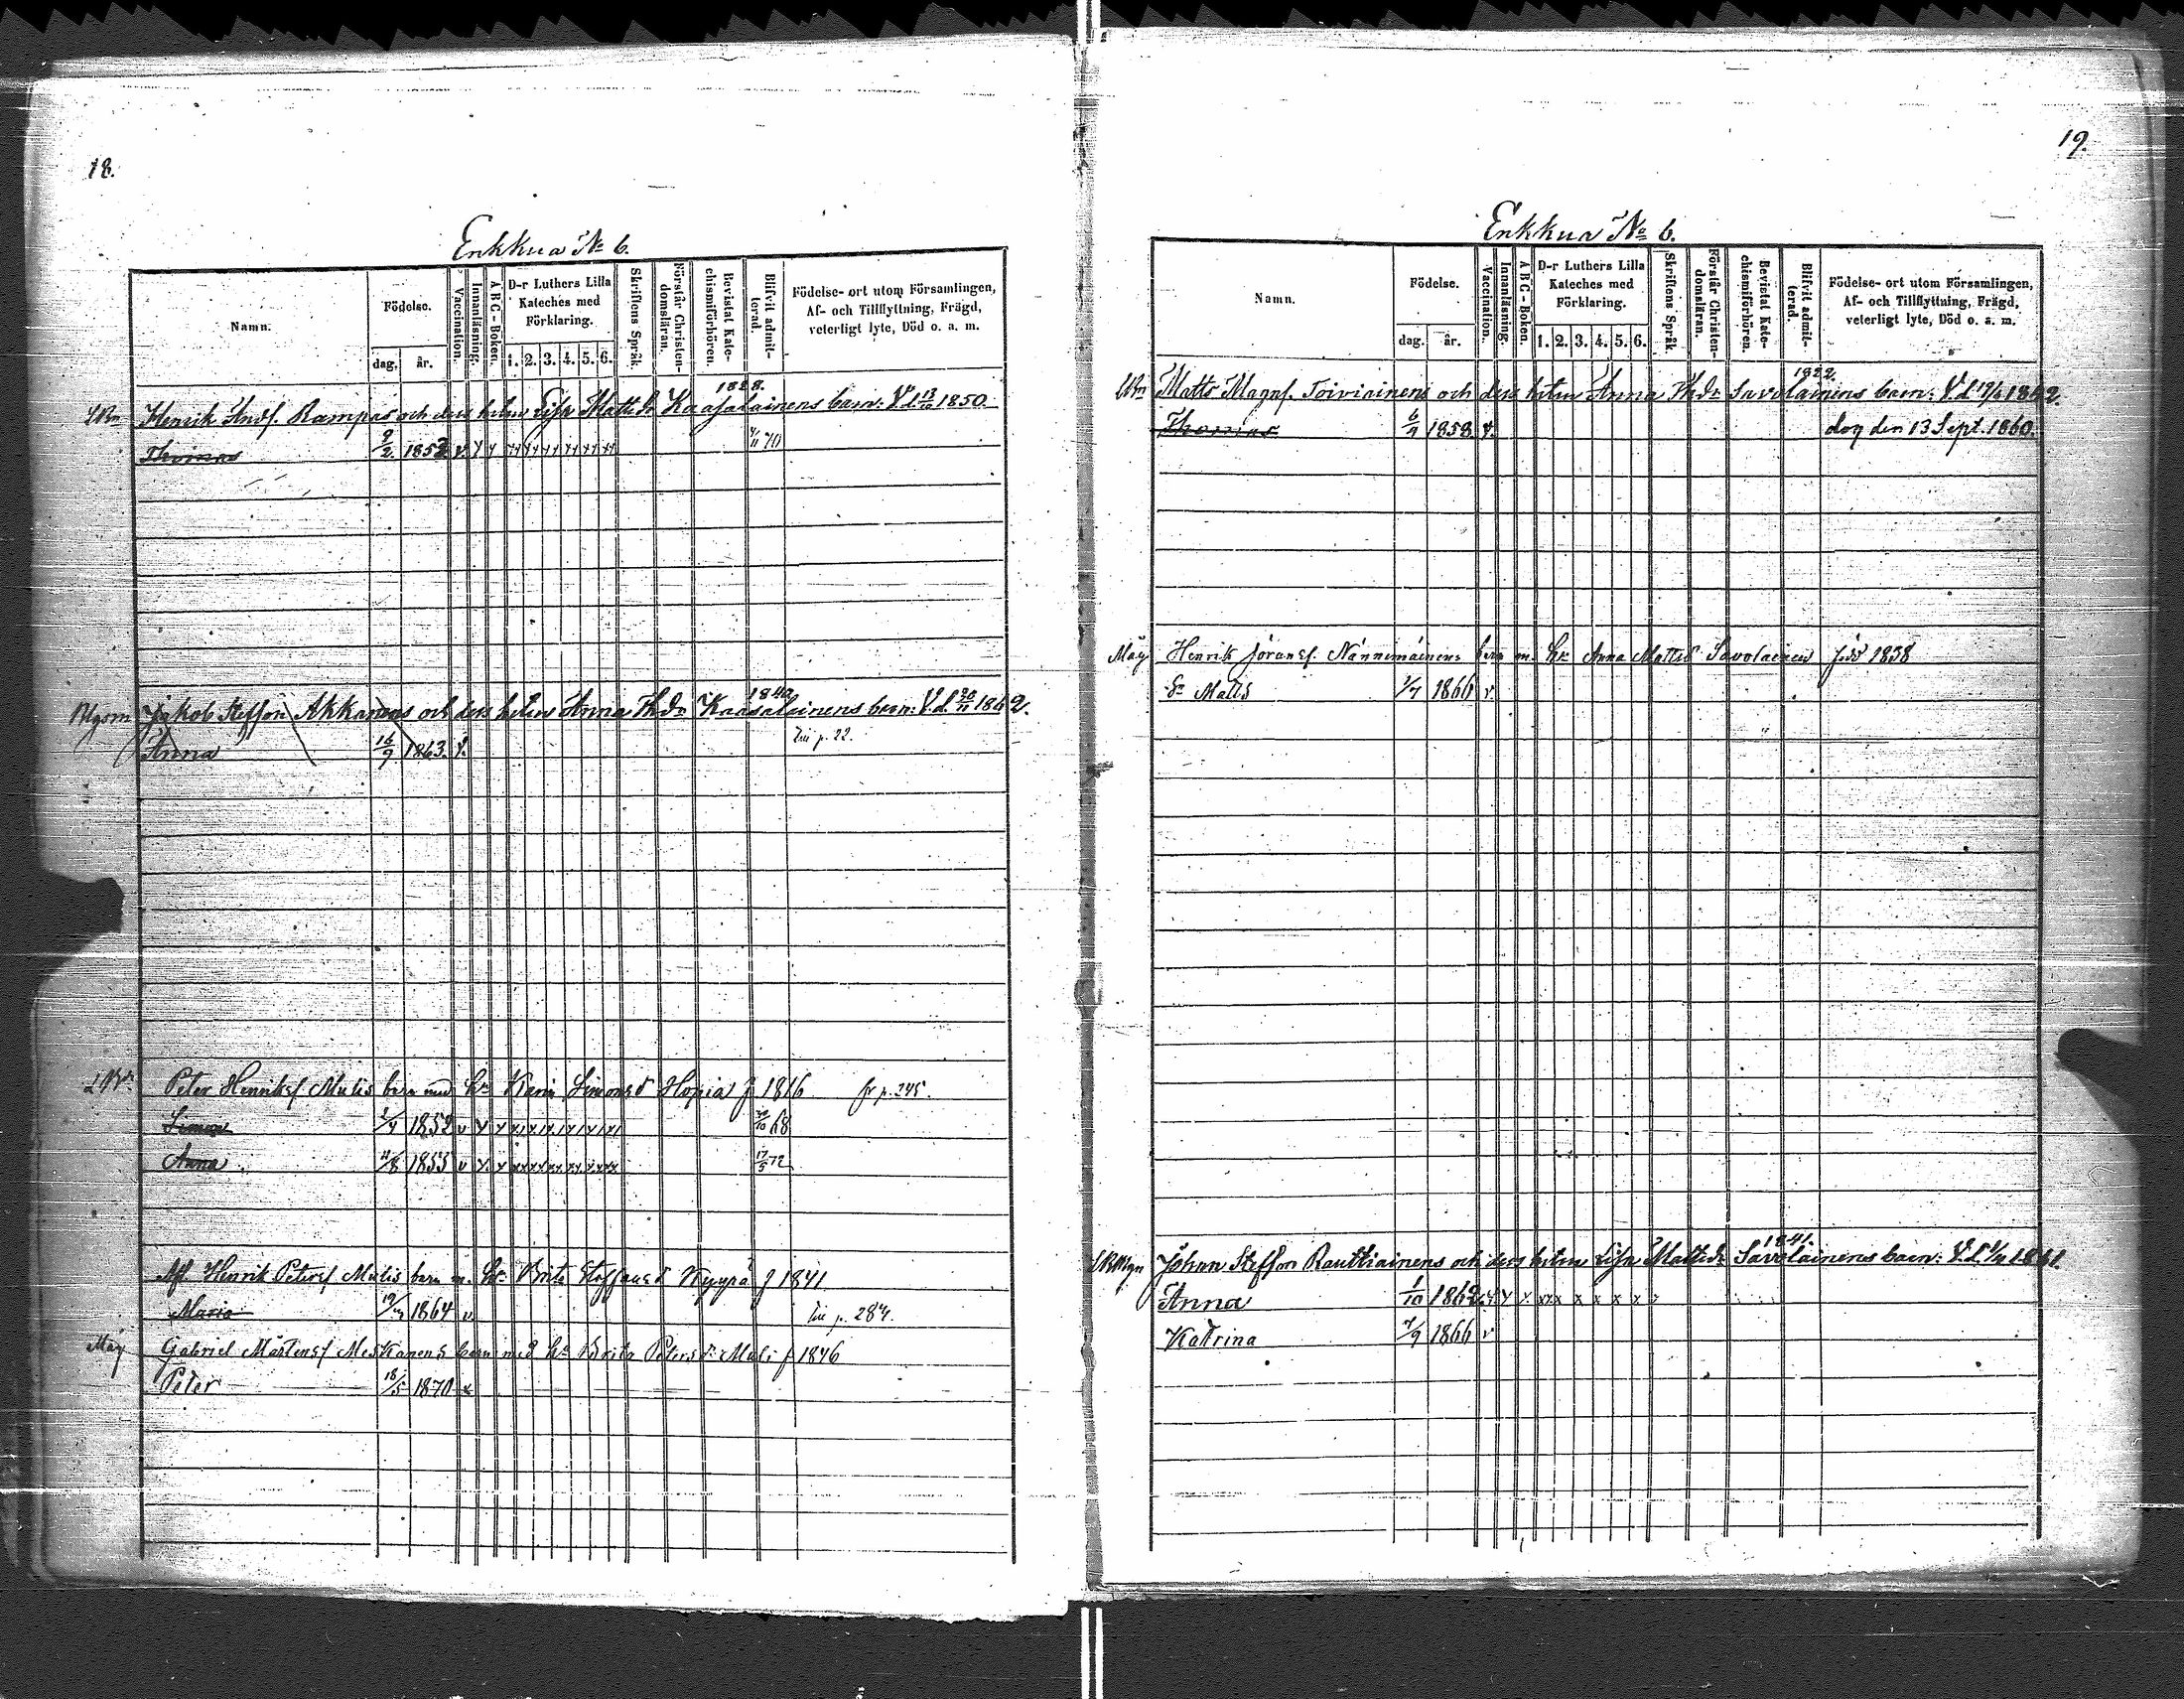 18.
Enkkua № 6.
Namn.
Födelse.
dag. år.
Vaccination.
Innanläsning.
A B C - Boken.
D-r Luthers Lilla Kateches med Förklaring.
1. 2. 3. 4. 5. 6.
Skriftens Språk.
Förstår Christendomsläran.
Bevistat Katechismiförhören.
Blifvit admitterad.
Födelse- ort utom Församlingen, Af- och Tillflyttning, Frägd, veterligt lyte, Död o. a. m.
1828.
Henrik Andf. Rampas och dess hstru Lisa Matts dr Kaasalainens barn: V. d. 1850.
Thomas 9/2 1852 v. 70
1840
Jakob Steffson Akkanens och dess hstru Anna Th.dr Kaasalainens barn: V. d. 20/11 1862.
Anna 16/9 1863. v. Till p. 22.
Peter Henriksf Mulis barn med h. Karin Simonsd Hopia f 1816 fr p. 245.
Simon 1/4 1852 v 68
Anna 11/8 1855 v 17/5 72
Afl. Henrik Petersf Mulis barn m. h. Brita Staffansd Kyypä f 1841
Maria 1864 v Till p. 284.
Måg Gabriel Mårtensf Meskanens barn med h. Brita Peters dr Muli f 1846
Peter 18/5 1870 v
19.
Enkkua № 6.
Namn.
Födelse.
dag. år.
Vaccination.
Innanläsning.
A B C - Boken.
D-r Luthers Lilla Kateches med Förklaring.
1. 2. 3. 4. 5. 6.
Skriftens Språk.
Förstår Christendomsläran.
Bevistat Katechismiförhören.
Blifvit admitterad.
Födelse- ort utom Församlingen, Af- och Tillflyttning, Frägd, veterligt lyte, Död o. a. m.
1822.
Matts Magnf. Toiviainens och dess hstru Anna Th.dr Savolainens barn: V. d. 1842.
Thomas 1858. v. dog den 13 Sept. 1860.
Måg Henrik Jöransf. Nännimäinens barn m. h. Anna Mattsd Savolainen född 1838
Matts 1/7 1866 v.
1841.
Johan Steffson Rauttiainens och dess hstru Lisa Matts dr Savolainens barn: V. d. 1861.
Anna 1/10 1862
Katrina 1866 v